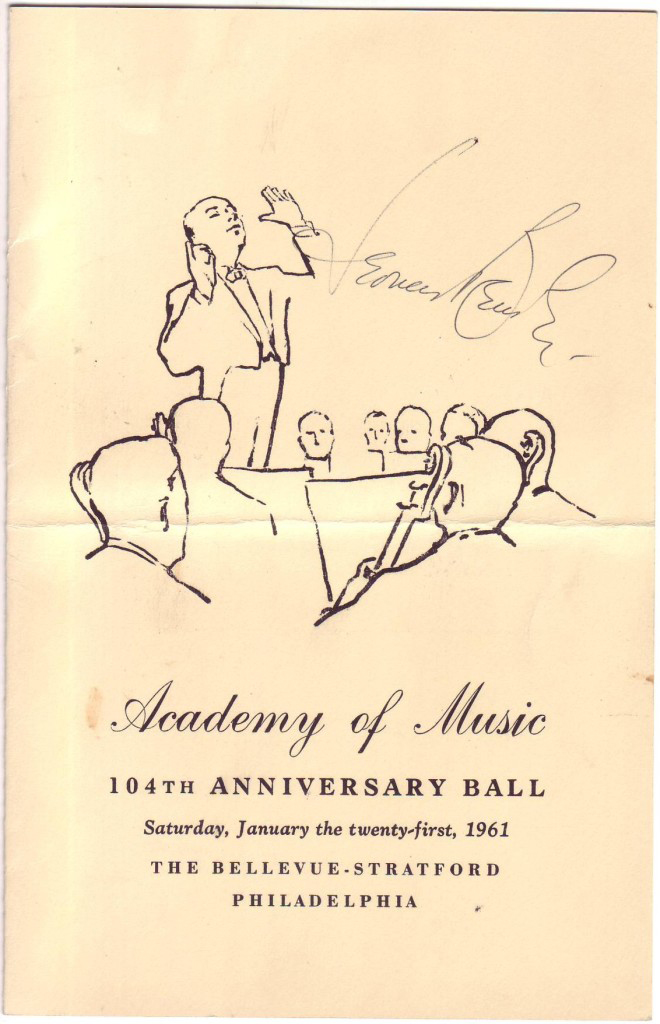 Academy of Music
104TH ANNIVERSARY BALL
Saturday, January the twenty-first, 1961
THE BELLEVUE-STRATFORD
PHILADELPHIA